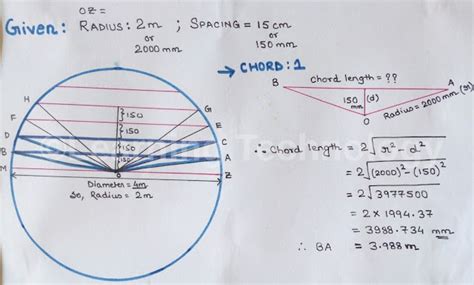 OZ =
Given: RADIUS: 2m ; SPACING = 15 cm
or or
2000 mm 150 mm
→ CHORD: 1
Chord length = ??
B A
150 mm (d)
Radius = 2000 mm (r)
O
H G
F E
D C
B A
M Z
150
150
150
150
O
Diameter = 4m
So, Radius = 2m
∴ Chord length = 2√r² - d²
= 2√(2000)² - (150)²
= 2√3977500
= 2 × 1994.37
= 3988.734 mm
∴ BA = 3.988 m